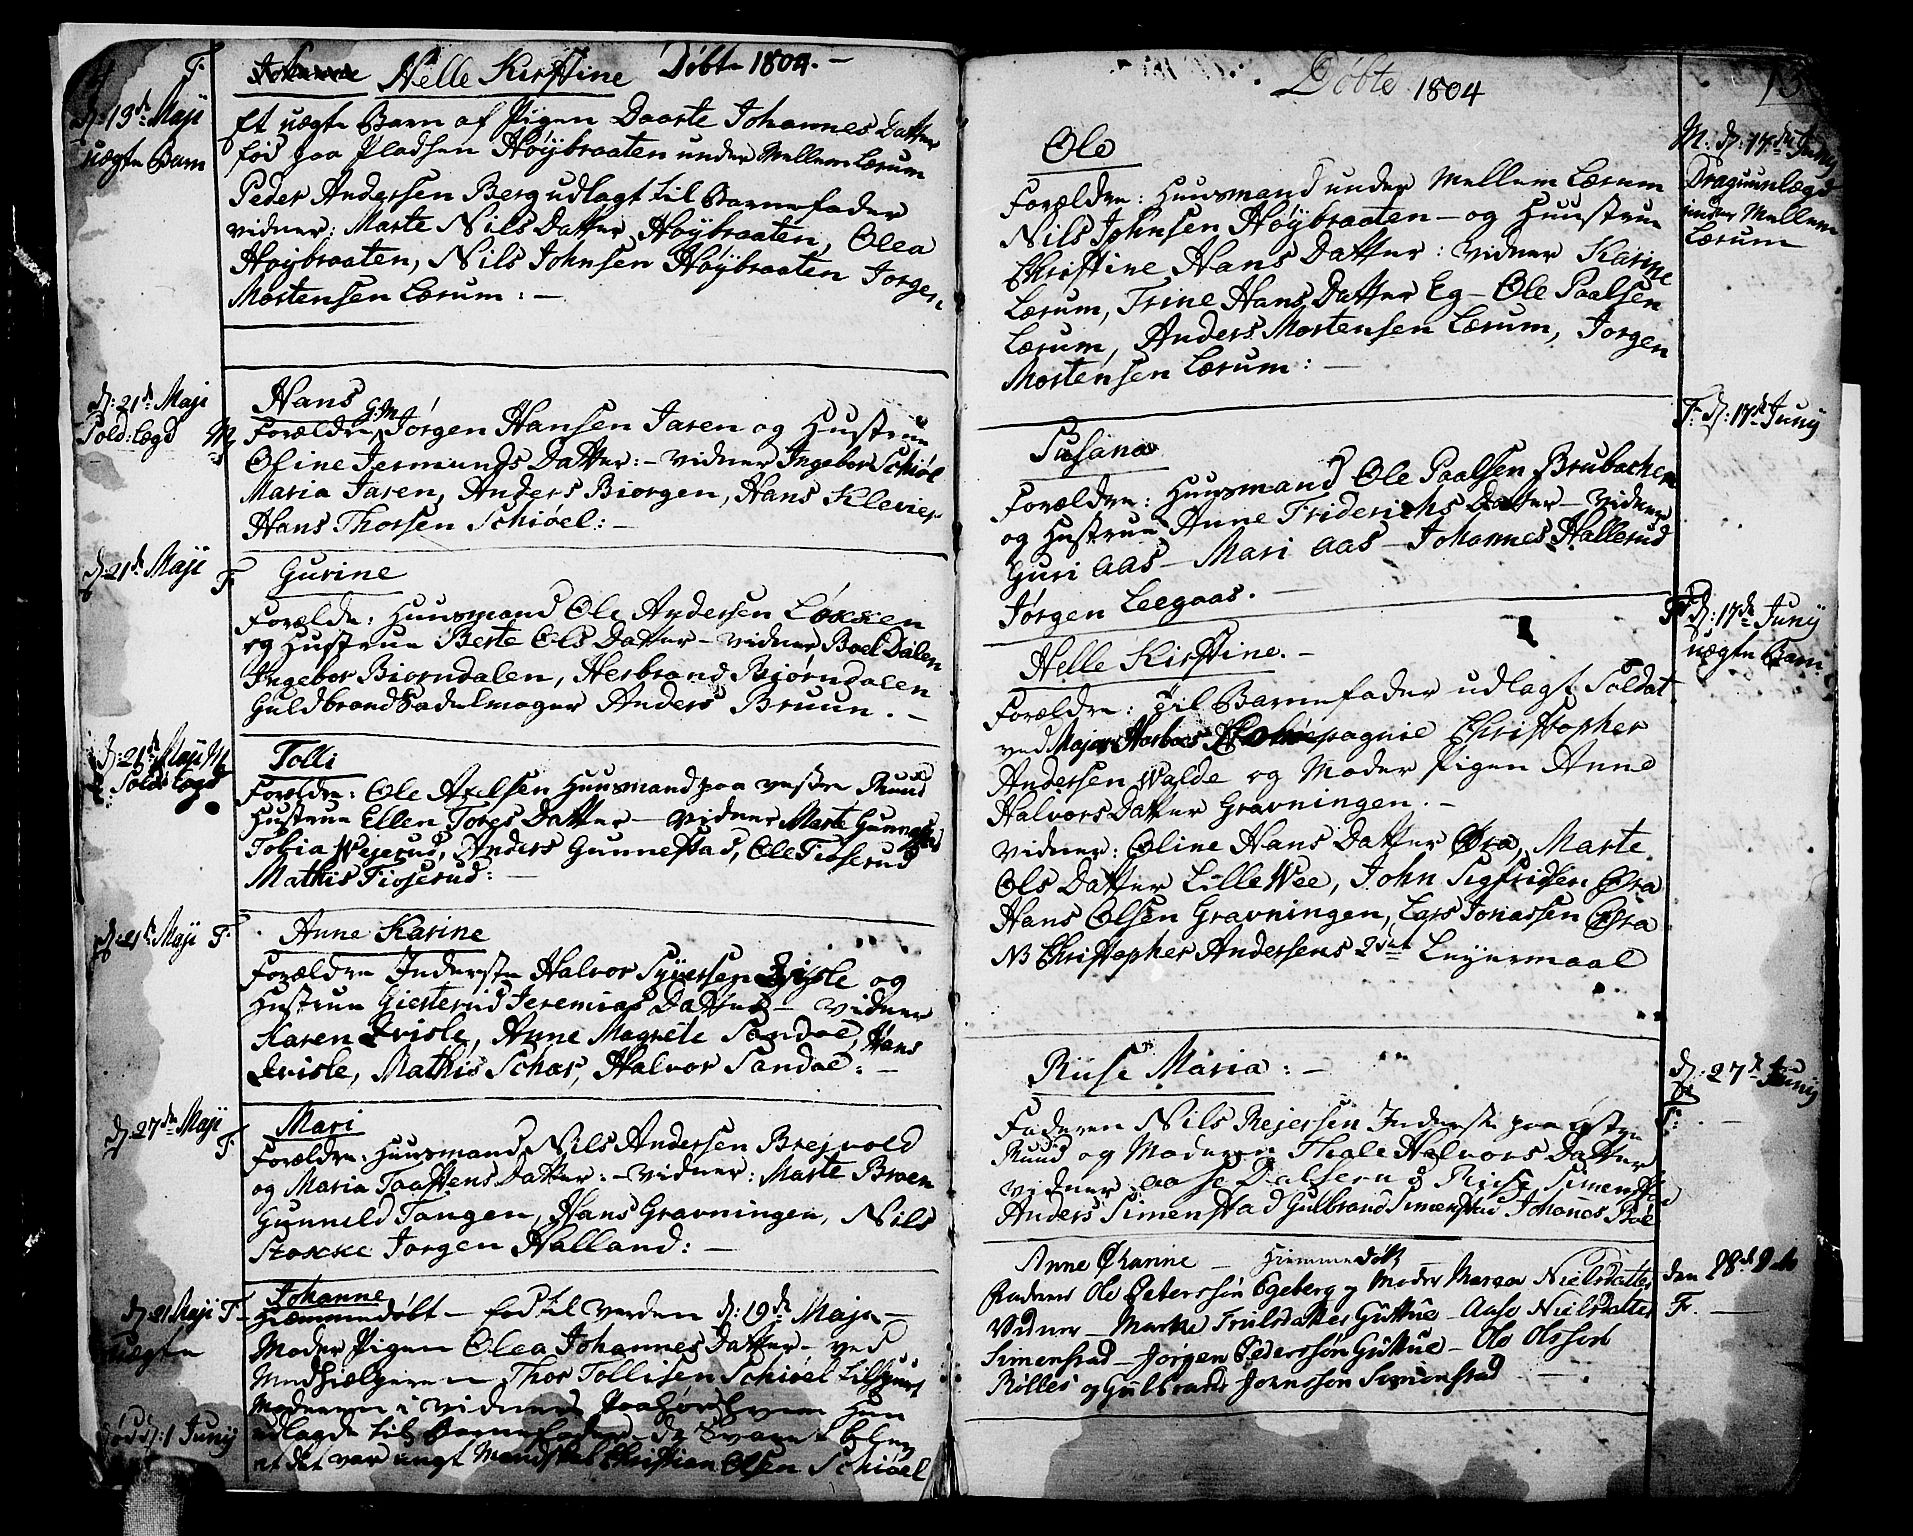 Døbte 1804. –
F.
Helle Kirstine
d: 13de Maji
uægte Barn
Et uægte Barn af Pigen Daarte Johannes Datter
fød paa Pladsen Høÿbraaten under Mellem Lærum
Peder Andersen Berg udlagt til Barnefader
vidner: Marte Nils Datter Høÿbraaten, Olea
Høÿbraaten, Nils Johnsen Høÿbraaten Jorgen
Mortensen Lærum: –
d: 21de Maji
Sold: Lægd
M
Hans
Forældre G:M Jørgen Hansen Jaren og Hustrue
Oline Jermunds Datter: – vidner Ingebor Schiøel
Maria Jaren, Anders Biorgen, Hans Klevier
Hans Thorsen Schiøel: –
d: 21de Maji
F.
Gurine
Forældre: Huusmand Ole Andersen Løkken
og Hustrue Berte Ols Datter – vidner Boel Dalen
Ingebor Biorndalen, Herbrand Bjørndalen
Guldbrand Sadelmager Anders Bruun. –
d: 21de Maji M
Sold: Lægd
Tolli
Forældre: Ole Axelsen Huusmand paa vestre Ruud
Hustrue Ellen Torgs Datter – vidner Marte Gunnestad
Tobia Wejerud, Anders Gunnestad, Ole Tioserud
Mathis Tioserud: –
d: 21de Maji F.
Anne Karine
Forældre Inderste Halvor Syversen Qvisle og
Hustrue Giesterud Jeremias Datter – vidner
Karen Qvisle, Anne Magrete Sandoe, Hans
Qvisle, Mathis Schar, Halvor Sandoe: –
d: 27de Maji
F.
Mari
Forældre: Huusmand Nils Andersen Brejvold
og Maria Taastens Datter: – vidner: Marte Broen
Gunneld Tangen, Hans Gravningen, Nils
Stokke Jorgen Halland: –
d: 21 Maji F –
uægte
Johanne
Hiemmedøbt – fød til verden d: 19de Maja –
Moder Pigen Olea Johannes Datter – ved
Medhielperen Thor Tollisen Schiøel tilspurt
Moderen i vidners Paahør hvem hun
udlagde til Barnefader – da Svaret blev
at det var ungt Mandskab Christian Olsen Schiøel
Død d: 1 Junij
Døbte 1804
13
M. d: 17de Junij
Dragunlægd
under Mellem
Lærum
Ole
Forældre: Huusmand under Mellem Lærum
Nils Johnsen Høÿbraaten – og Huustrue
Christine Hans Datter: vidner Karine
Lærum, Trine Hans Datter Eg – Ole Paalsen
Lærum, Anders Mortensen Lærum, Jorgen
Mortensen Lærum: –
F. d: 17de Junij
Susana
Forældre: Huusmand Ole Paalsen Brubachen
og Hustrue Anne Friderichs Datter – vidner
Guri Aas – Mari Aas – Johannes Hallerud
Jørgen Leegaas. –
F d: 17de Junij
uægte Barn
Helle Kirstine. –
Forældre: Til Barnefader udlagt Soldat
ved Major Compagnie Christopher
Andersen Walde og Moder Pigen Anne
Halvors Datter Gravningen. –
vidner: Oline Hans Datter Øra, Marte
Ols Datter Lille Wee, John Sigfridsen Øra
Hans Olsen Gravningen, Lars Jonassen Øra
NB Christopher Andersens 2det Leyermaal
d: 27de Junij
F: –
Ruse Maria: –
Faderen Nils Rejersen Inderste paa østre
Ruud og Moderen Thale Halvors Datter
vidner Aase Dalserud Ruse Simenstad
Anders Simenstad Gulbrand Simenstad Johanes Boe
den 28de
F. –
Anne Karine – Hiemmedøbt
Faderen Ole Peterssøn Egeberg og Moder Maren Nielsdatter
Vidner – Marthe Truilsdatter Güttue – Aase Nielsdatter
Simenstad – Jørgen Pederssøn Güttue – Ole Olssøn
Rølles og Gulbrand Jonssøn Simenstad –